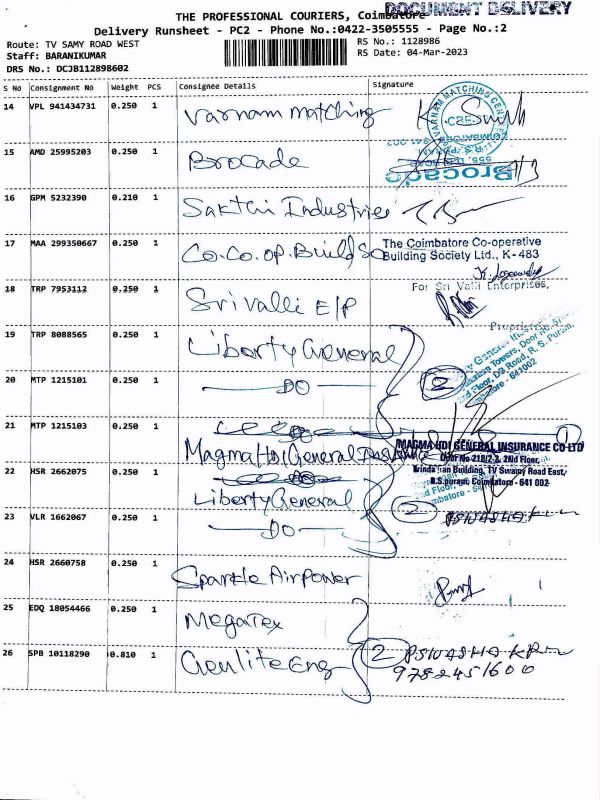 DOCUMENT DELIVERY
THE PROFESSIONAL COURIERS, Coimbatore
Delivery Runsheet - PC2 - Phone No.:0422-3505555 - Page No.:2
Route: TV SAMY ROAD WEST
RS No.: 1128986
Staff: BARANIKUMAR
RS Date: 04-Mar-2023
DRS No.: DCJB112898602
S No Consignment No Weight PCS Consignee Details Signature
14 VPL 941434731 0.250 1 Varnam matching
VARNAM MATCHING CENTRE
CBE
15 AMD 25995203 0.250 1 Brocade
Brocade
16 GPM 5232390 0.210 1 Sakthi Industries
17 MAA 299350667 0.250 1 Co.Co.op.Build So
The Coimbatore Co-operative
Building Society Ltd., K-483
18 TRP 7953112 0.250 1 Srivalli E/P
For Sri Valli Enterprises,
Proprietrix
19 TRP 8088565 0.250 1 Liberty General
20 MTP 1215101 0.250 1 DO
2
21 MTP 1215103 0.250 1 Magma Hdi General Insurance
MAGMA HDI GENERAL INSURANCE CO LTD
Door No-218/2-3, 2Nd Floor,
Brindavan Building, TV Swamy Road East,
R.S.puram, Coimbatore - 641 002
22 HSR 2662075 0.250 1 Liberty General
2
23 VLR 1662067 0.250 1 DO
24 HSR 2660758 0.250 1 Sparkle Airpower
25 EDQ 18054466 0.250 1 Megatex
26 SPB 10118290 0.810 1 Genlite Eng
2
9782451600